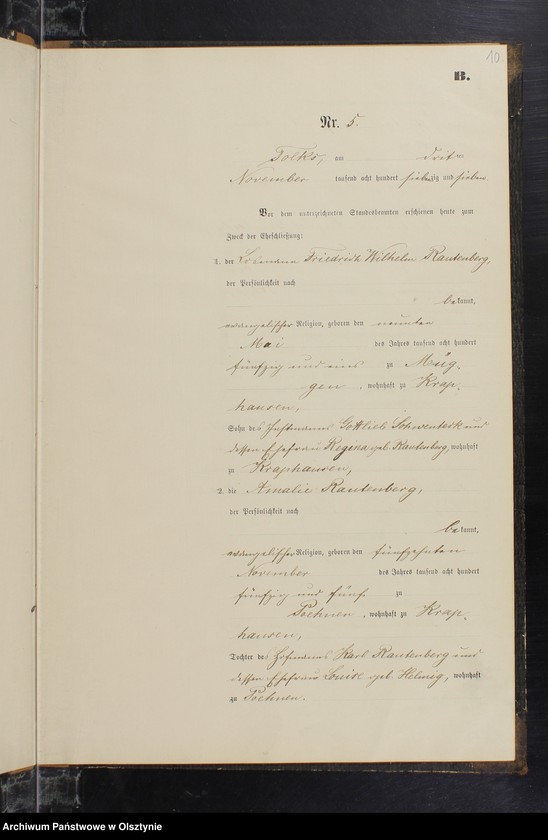 10
B.
Nr. 5.
Tolks, am dritten
November tausend acht hundert siebenzig und sieben.
Vor dem unterzeichneten Standesbeamten erschienen heute zum
Zweck der Eheschließung:
1. der Friedrich Wilhelm Rautenberg,
der Persönlichkeit nach
bekannt,
evangelischer Religion, geboren den neunten
Mai des Jahres tausend acht hundert
fünfzig und eins zu
gen, wohnhaft zu Krap-
hausen,
Sohn des Gottlieb und
dessen Ehefrau Regina geb. Rautenberg, wohnhaft
zu Kraphausen,
2. die Amalie Rautenberg,
der Persönlichkeit nach
bekannt,
evangelischer Religion, geboren den fünfzehnten
November des Jahres tausend acht hundert
fünfzig und fünf zu
wohnhaft zu Krap-
hausen,
Tochter des Karl Rautenberg und
dessen Ehefrau Louise geb. Helmig, wohnhaft
zu
Archiwum Państwowe w Olsztynie